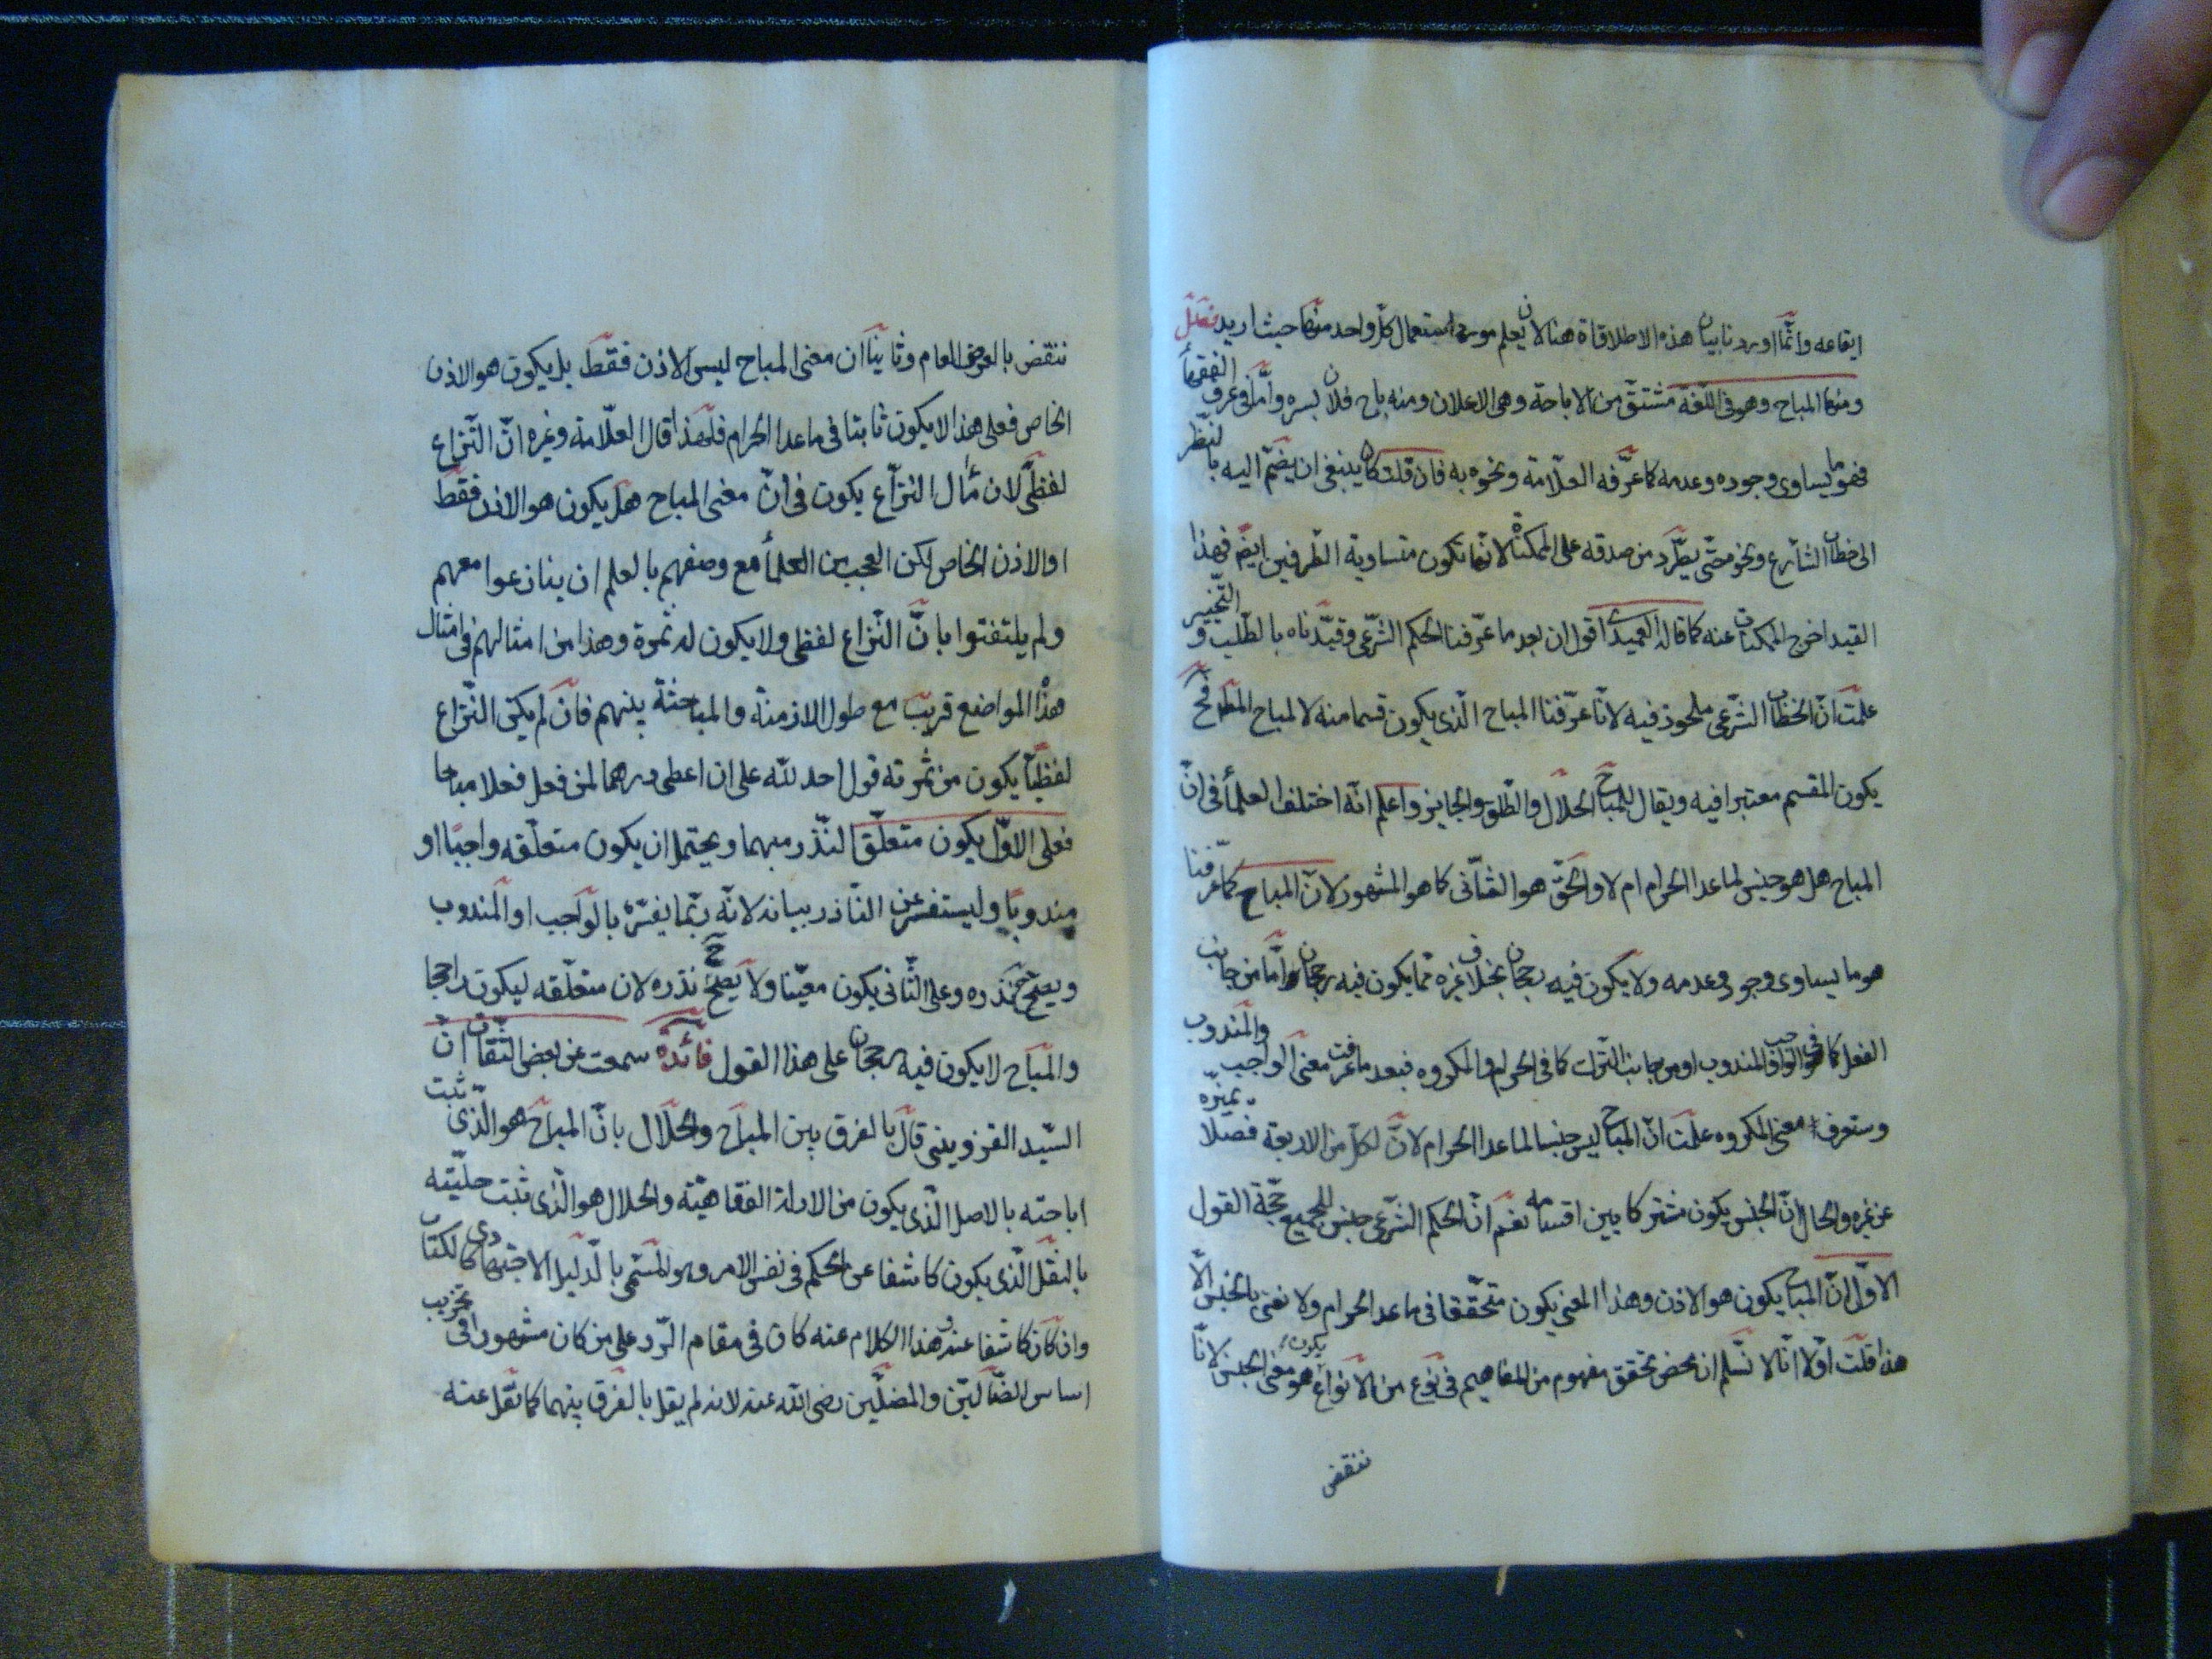 ايقاعه وانّما اوردنا بيان هذه الاطلاقاة هنا لان يعلم استعمال كلّ واحد منها حيث اريد
ومنها المباح وهو فى اللّغة مشتقّ من الاباحة وهى الاعلان ومنه باح فلان بسره وامّا فى عرف الفقهاء
فهو ما يساوى وجوده وعدمه كما عرّفه العلّامة ونحوه به فان قلت كان ينبغى ان يضمّ اليه بالنّظر
الى خطاب الشّارع ونحوه حتّى يطّرد من صدقه على الممكنة لانّها تكون متساوية الطّرفين ايضّ فهذا
القيد اخرج الممكنات عنه كما قاله العميدى اقول ان بعد ما عرّفنا الحكم الشّرعى وقيّدناه بالطّلب و التّخيير
علمت انّ الخطاب الشّرعى ملحوذ فيه لانّا عرّفنا المباح الّذى يكون قسما منه لا المباح المطّ فح
يكون المقسم معتبرا فيه ويقال للمباح الحلال والطّلق والجايز واعلم انّه اختلف العلمأ فى انّ
المباح هل هو جنس لما عدا الحرام ام لا والحقّ هو الثّانى كما هو المشهور لانّ المباح كما عرّفنا
هو ما يساوى وجوده وعدمه ولا يكون فيه رجحان بخلاف غيره ممّا يكون فيه رجحان وامّا من جانب
الفعل كما فى الواجب والمندوب او من جانب التّرك كما فى الحرام والمكروه فبعد ما عرفت معنى الواجب والمندوب
وستعرف معنى المكروه علمت انّ المباح ليس جنسا لما عدا الحرام لانّ لكلّ من الاربعة فصلا يميزّه
عن غيره والحال انّ الجنس يكون مشتركا بين اقسامه نعم انّ الحكم الشّرعى جنس للجميع حجّة القول
الاوّل انّ المباح يكون هو الاذن وهذا المعنى يكون متحّققا فى ما عدا الحرام ولا نعنى بالجنس الّا
هذا قلت اوّلا انّا لا نسّلم ان محض تحقق مفهوم من المفاهيم فى نوع من الانواع يكون هو معنى الجنس لانّا
ننقض
ننقض بالعرض العام وثانيّا ان معنى المباح ليس الاذن فقط بل يكون هو الاذن
الخاص فعلى هذا لا يكون ثابتا فى ما عدا الحرام فلهذا قال العلّامة وغيره انّ النّزاع
لفظى لان مأل النزّاع يكون فى انّ معنى المباح هل يكون هو الاذن فقط
او الاذن الخاص لكن العجب من العلمأ مع وصفهم بالعلم ان ينازعوا معهم
ولم يلتفتوا بانّ النّزاع لفظى ولا يكون له ثمرة وهذا من امثالهم فى امثال
هذا المواضع قريب مع طول الازمنة والمباحثة بينهم فان لم يكن النّزاع
لفظيّا يكون من ثمرته قول احد لله على ان اعطى درهما لمن فعل فعلا مباحا
فعلى الاوّل يكون متعلّق النّذر مبهما ويحتمل ان يكون متعلّقه واجبًا او
مندوبًا وليستفسر عن النّاذر بيانه لانّه ربّما يفسّره بالواجب او المندوب
ويصحّ ح نذره وعلى الثّانى يكون معيّنا ولا يصحّ ح نذره لان متعلّقه ليكون راجحا
والمباح لا يكون فيه رجحان على هذا القول فائدة سمعت عن بعض الثّقات انّ
السّيد القزوينى قال بالفرق بين المباح والحلال بانّ المباح هو الّذى ثبت
اباحته بالاصل الّذى يكون من الادلة الفقاهيّة والحلال هو الّذى ثبت حليّته
بالنقل الّذى يكون كاشفا عن الحكم فى نفس الامر وهو المسّمى بالدّليل الاجتهادى كالكتاب
وان كان كاشفا عنه وهذا الكلام عنه كان فى مقام الرّد على من كان مشهورا فى تخريب
اساس الضّالّين والمضلّين رضى الله عنه لانه لم يقل بالفرق بينهما كما نقل عنه